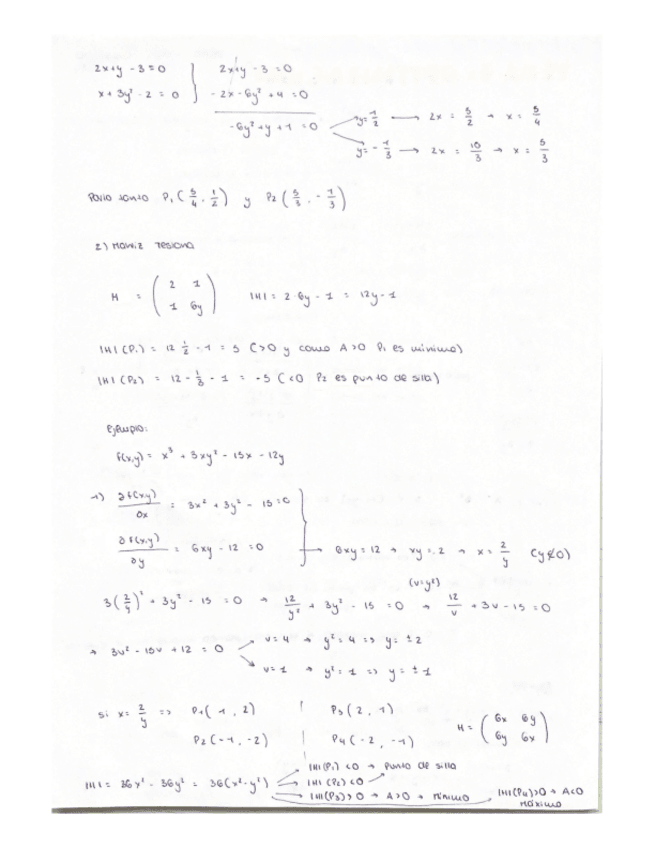 2x+y-3=0 } 2x+y-3=0
x+3y²-2=0 } -2x-6y²+4=0
-6y²+y+1=0
y=1/2 → 2x = 5/2 → x = 5/4
y=-1/3 → 2x = 10/3 → x = 5/3
Por lo tanto P₁(5/4, 1/2) y P₂(5/3, -1/3)
2) Matriz Hesiana
H = (2 1; 1 6y) |H| = 2·6y - 1 = 12y-1
|H|(P₁) = 12 1/2 - 1 = 5 (>0 y como A>0 P₁ es mínimo)
|H|(P₂) = 12 · -1/3 - 1 = -5 (<0 P₂ es punto de silla)
Ejemplo:
f(x,y) = x³ + 3xy² - 15x - 12y
1) ∂f(x,y)/∂x = 3x² + 3y² - 15 = 0
∂f(x,y)/∂y = 6xy - 12 = 0 → 6xy = 12 → xy = 2 → x = 2/y (y≠0)
(v=y²)
3(2/y)² + 3y² - 15 = 0 → 12/y² + 3y² - 15 = 0 → 12/v + 3v - 15 = 0
→ 3v² - 15v + 12 = 0
v=4 → y² = 4 => y = ±2
v=1 → y² = 1 => y = ±1
si x = 2/y => P₁(1, 2) | P₃(2, 1)
P₂(-1, -2) | P₄(-2, -1)
H = (6x 6y; 6y 6x)
|H| = 36x² - 36y² = 36(x²-y²)
|H|(P₁) <0 → punto de silla
|H|(P₂) <0
|H|(P₃) >0 → A>0 → mínimo
|H|(P₄) >0 → A<0
máximo